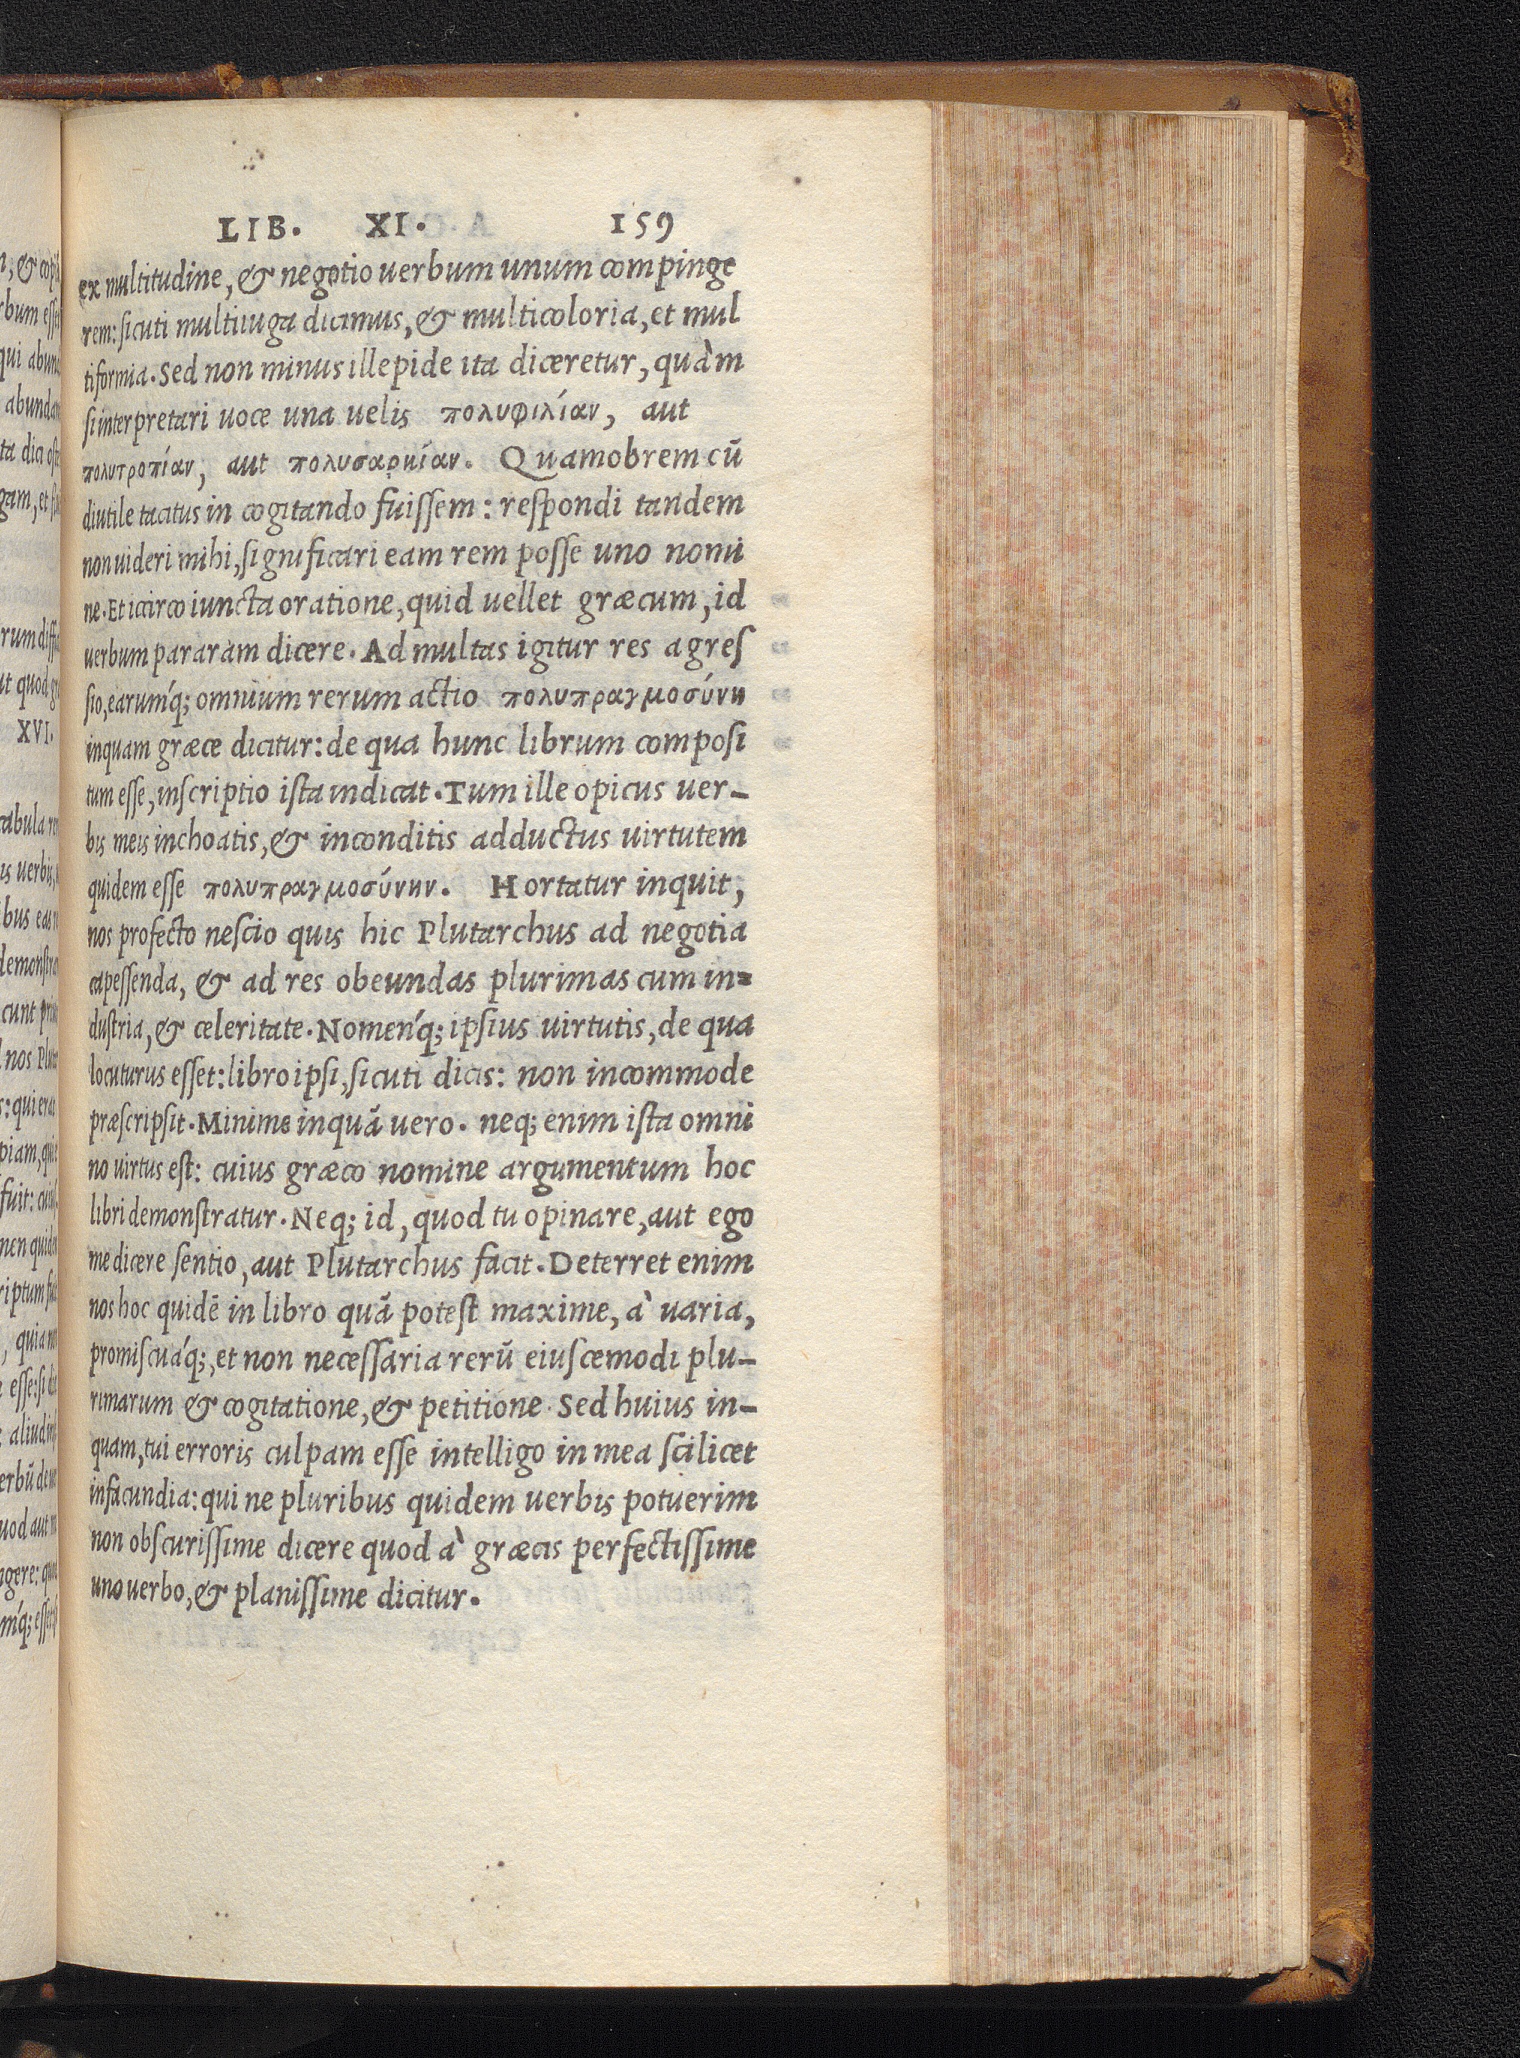 LIB. XI. 159
ex multitudine, & negotio uerbum unum compinge
rem: sicuti multiiuga dicimus, & multicoloria, et mul
tiformia. Sed non minus illepide ita diceretur, quàm
si interpretari uoce una uelis πολυφιλίαν, aut
πολυτροπίαν, aut πολυσαρκίαν. Quamobrem cū
diutile tacitus in cogitando fuissem: respondi tandem
non uideri mihi, significari eam rem posse uno nomi
ne. Et icirco iuncta oratione, quid uellet græcum, id
uerbum pararam dicere. Ad multas igitur res agres
sio, earumq́; omnium rerum actio πολυπραγμοσύνη
inquam græce dicitur: de qua hunc librum composi
tum esse, inscriptio ista indicat. Tum ille opicus uer-
bis meis inchoatis, & inconditis adductus uirtutem
quidem esse πολυπραγμοσύνην. Hortatur inquit,
nos profecto nescio quis hic Plutarchus ad negotia
capessenda, & ad res obeundas plurimas cum in-
dustria, & celeritate. Nomenq́; ipsius uirtutis, de qua
locuturus esset: libro ipsi, sicuti dicis: non incommode
præscripsit. Minime inquā uero. neq; enim ista omni
no uirtus est: cuius græco nomine argumentum hoc
libri demonstratur. Neq; id, quod tu opinare, aut ego
me dicere sentio, aut Plutarchus facit. Deterret enim
nos hoc quidē in libro quā potest maxime, à uaria,
promiscuáq;, et non necessaria rerū eiuscemodi plu-
rimarum & cogitatione, & petitione. Sed huius in-
quam, tui erroris culpam esse intelligo in mea scilicet
infacundia: qui ne pluribus quidem uerbis potuerim
non obscurissime dicere quod à græcis perfectissime
uno uerbo, & planissime dicitur.